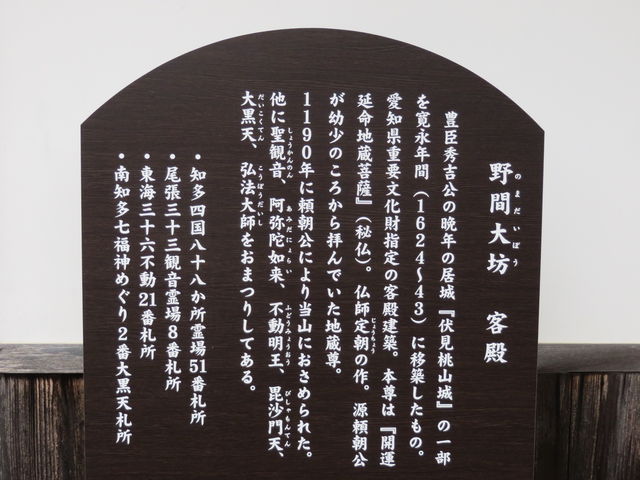 野間大坊　客殿
のまだいぼう
豊臣秀吉公の晩年の居城『伏見桃山城』の一部
を寛永年間（1624〜43）に移築したもの。
愛知県重要文化財指定の客殿建築。本尊は『開運
延命地蔵菩薩』（秘仏）。仏師定朝の作。源頼朝公
じょうちょう
が幼少のころから拝んでいた地蔵尊。
1190年に頼朝公により当山におさめられた。
他に聖観音、阿弥陀如来、不動明王、毘沙門天、
しょうかんのん　あみだにょらい　ふどうみょうおう　びしゃもんてん
大黒天、弘法大師をおまつりしてある。
だいこくてん　こうぼうだいし
・知多四国八十八か所霊場51番札所
・尾張三十三観音霊場8番札所
・東海三十六不動21番札所
・南知多七福神めぐり2番大黒天札所